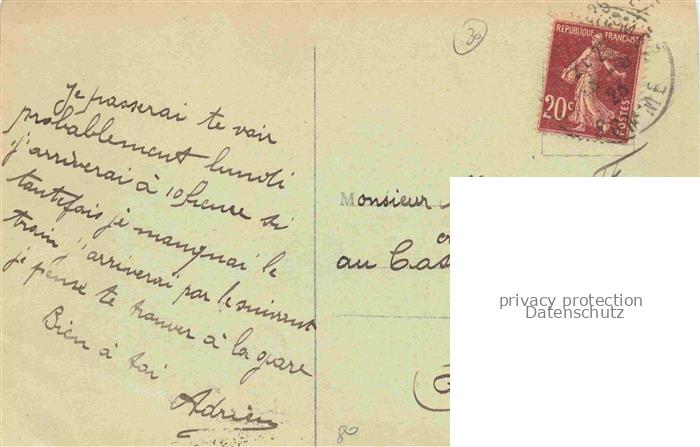 je passerai te voir
probablement lundi
j'arriverai à 10 heure si
toutefois je manquai le
train j'arriverai par le suivant
je pense te trouver à la gare
Bien à toi
Adrien
30
REPUBLIQUE FRANÇAISE
20c
POSTES
Monsieur
au Cas
privacy protection
Datenschutz
80